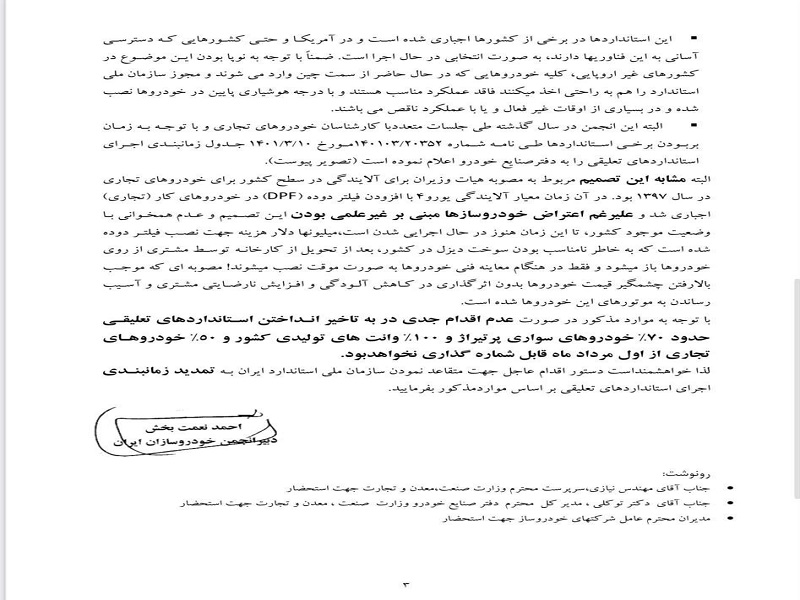 این استانداردها در برخی از کشورها اجباری شده است و در آمریکا و حتی کشورهایی که دسترسی
آسانی به این فناوریها دارند، به صورت انتخابی در حال اجرا است. ضمناً با توجه به نوپا بودن این موضوع در
کشورهای غیر اروپایی، کلیه خودروهایی که در حال حاضر از سمت چین وارد می شوند و مجوز سازمان ملی
استاندارد را هم به راحتی اخذ میکنند فاقد عملکرد مناسب هستند و با درجه هوشیاری پایین در خودروها نصب
شده و در بسیاری از اوقات غیر فعال و یا با عملکرد ناقص می باشند.
البته این انجمن در سال گذشته طی جلسات متعددبا کارشناسان خودروهای تجاری و با توجه به زمان
بربودن برخی استانداردها طی نامه شماره ۱۴۰۱۰۳/۲۰۳۵۲مورخ ۱۴۰۱/۳/۱۰ جدول زمانبندی اجرای
استانداردهای تعلیقی را به دفترصنایع خودرو اعلام نموده است (تصویر پیوست).
البته مشابه این تصمیم مربوط به مصوبه هیات وزیران برای آلایندگی در سطح کشور برای خودروهای تجاری
در سال ۱۳۹۷ بود. در آن زمان معیار آلایندگی یورو۴ با افزودن فیلتر دوده (DPF) در خودروهای کار (تجاری)
اجباری شد و علیرغم اعتراض خودروسازها مبنی بر غیرعلمی بودن این تصمیم و عدم همخوانی با
وضعیت موجود کشور، تا این زمان هنوز در حال اجرایی شدن است،میلیونها دلار هزینه جهت نصب فیلتر دوده
شده است که به خاطر نامناسب بودن سوخت دیزل در کشور، بعد از تحویل از کارخانه توسط مشتری از روی
خودروها باز میشود و فقط در هنگام معاینه فنی خودروها به صورت موقت نصب میشوند! مصوبه ای که موجب
بالارفتن چشمگیر قیمت خودروها بدون اثرگذاری در کاهش آلودگی و افزایش نارضایتی مشتری و آسیب
رساندن به موتورهای این خودروها شده است.
با توجه به موارد مذکور در صورت عدم اقدام جدی در به تاخیر انداختن استانداردهای تعلیقی
حدود ۷۰٪ خودروهای سواری پرتیراژ و ۱۰۰٪ وانت های تولیدی کشور و ۵۰٪ خودروهای
تجاری از اول مرداد ماه قابل شماره گذاری نخواهدبود.
لذا خواهشمنداست دستور اقدام عاجل جهت متقاعد نمودن سازمان ملی استاندارد ایران به تمدید زمانبندی
اجرای استانداردهای تعلیقی بر اساس مواردمذکور بفرمایید.
احمد نعمت بخش
دبیرانجمن خودروسازان ایران
رونوشت:
جناب آقای مهندس نیازی،سرپرست محترم وزارت صنعت،معدن و تجارت جهت استحضار
جناب آقای دکتر توکلی ، مدیر کل محترم دفتر صنایع خودرو وزارت صنعت ، معدن و تجارت جهت استحضار
مدیران محترم عامل شرکتهای خودروساز جهت استحضار
۳